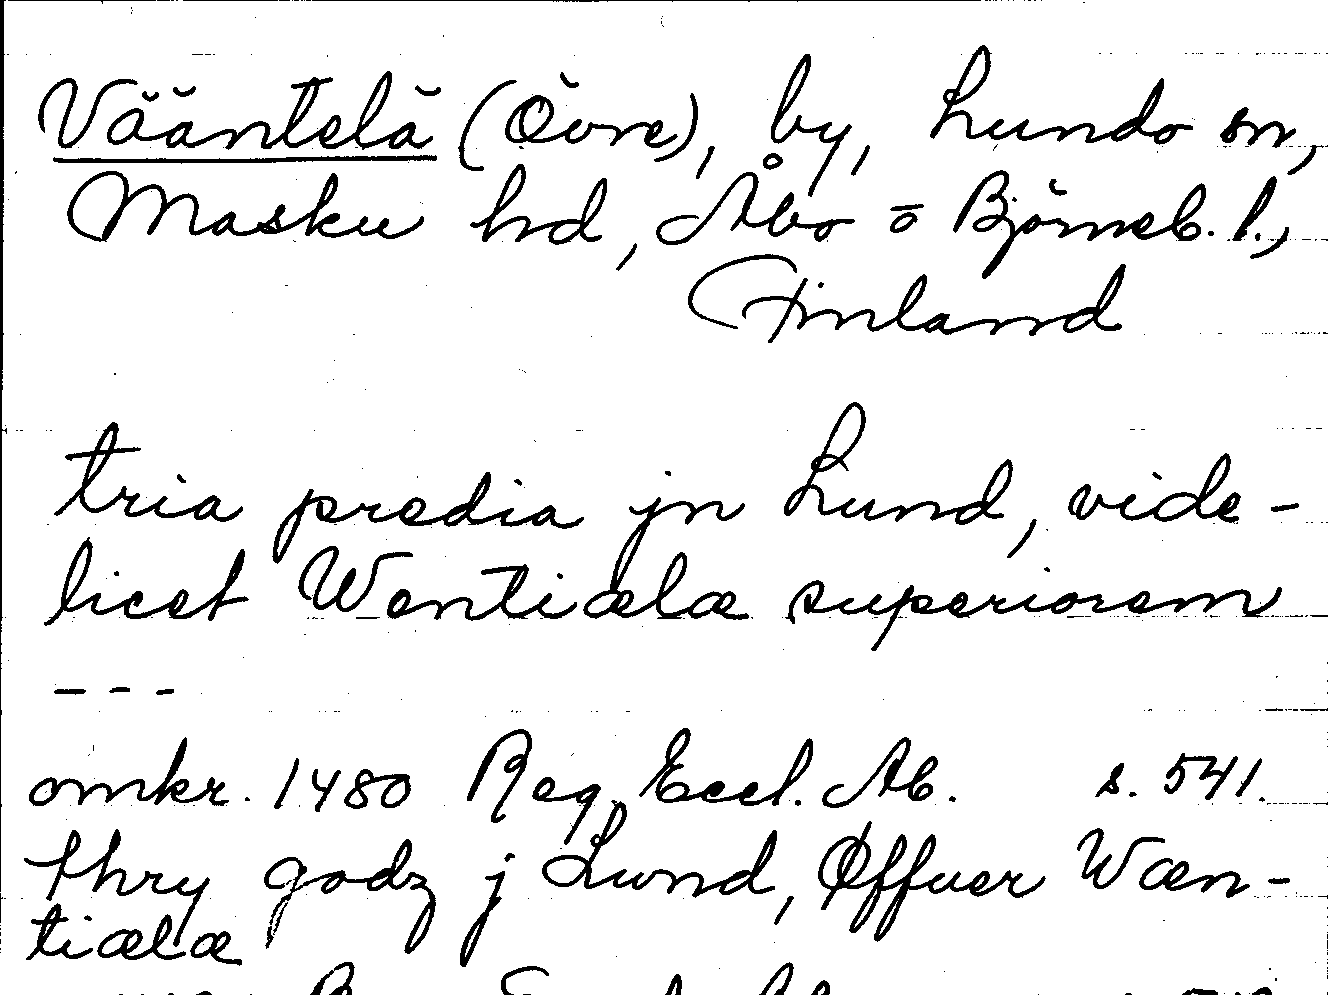 Vääntelä (Övre), by, Lundo sn,
Masku hd, Åbo o Björneb. l.,
Finland
tria predia jn Lund, vide-
licet Wentiælæ superiorem
---
omkr. 1480 Reg. Eccl. Ab. s. 541.
thry godz j Lund, Øffuer Wæn-
tiælæ